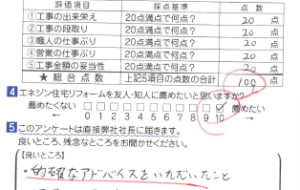 評価項目 採点基準 点数
①工事の出来栄え 20点満点で何点? 20 点
②工事の段取り 20点満点で何点? 20 点
③職人の仕事ぶり 20点満点で何点? 20 点
④営業の仕事ぶり 20点満点で何点? 20 点
⑤工事金額の妥当性 20点満点で何点? 20 点
★総合点数 上記5項目の点数の合計 100 点
4 エネジン住宅リフォームを友人・知人に薦めたいと思いますか?
薦めたくない □□□□□□□□□□☑ 薦めたい
0 1 2 3 4 5 6 7 8 9 10
5 このアンケートは直接弊社社長に届きます。
良いところ、残念なところをお聞かせください。
【良いところ】
・的確なアドバイスをいただいたこと